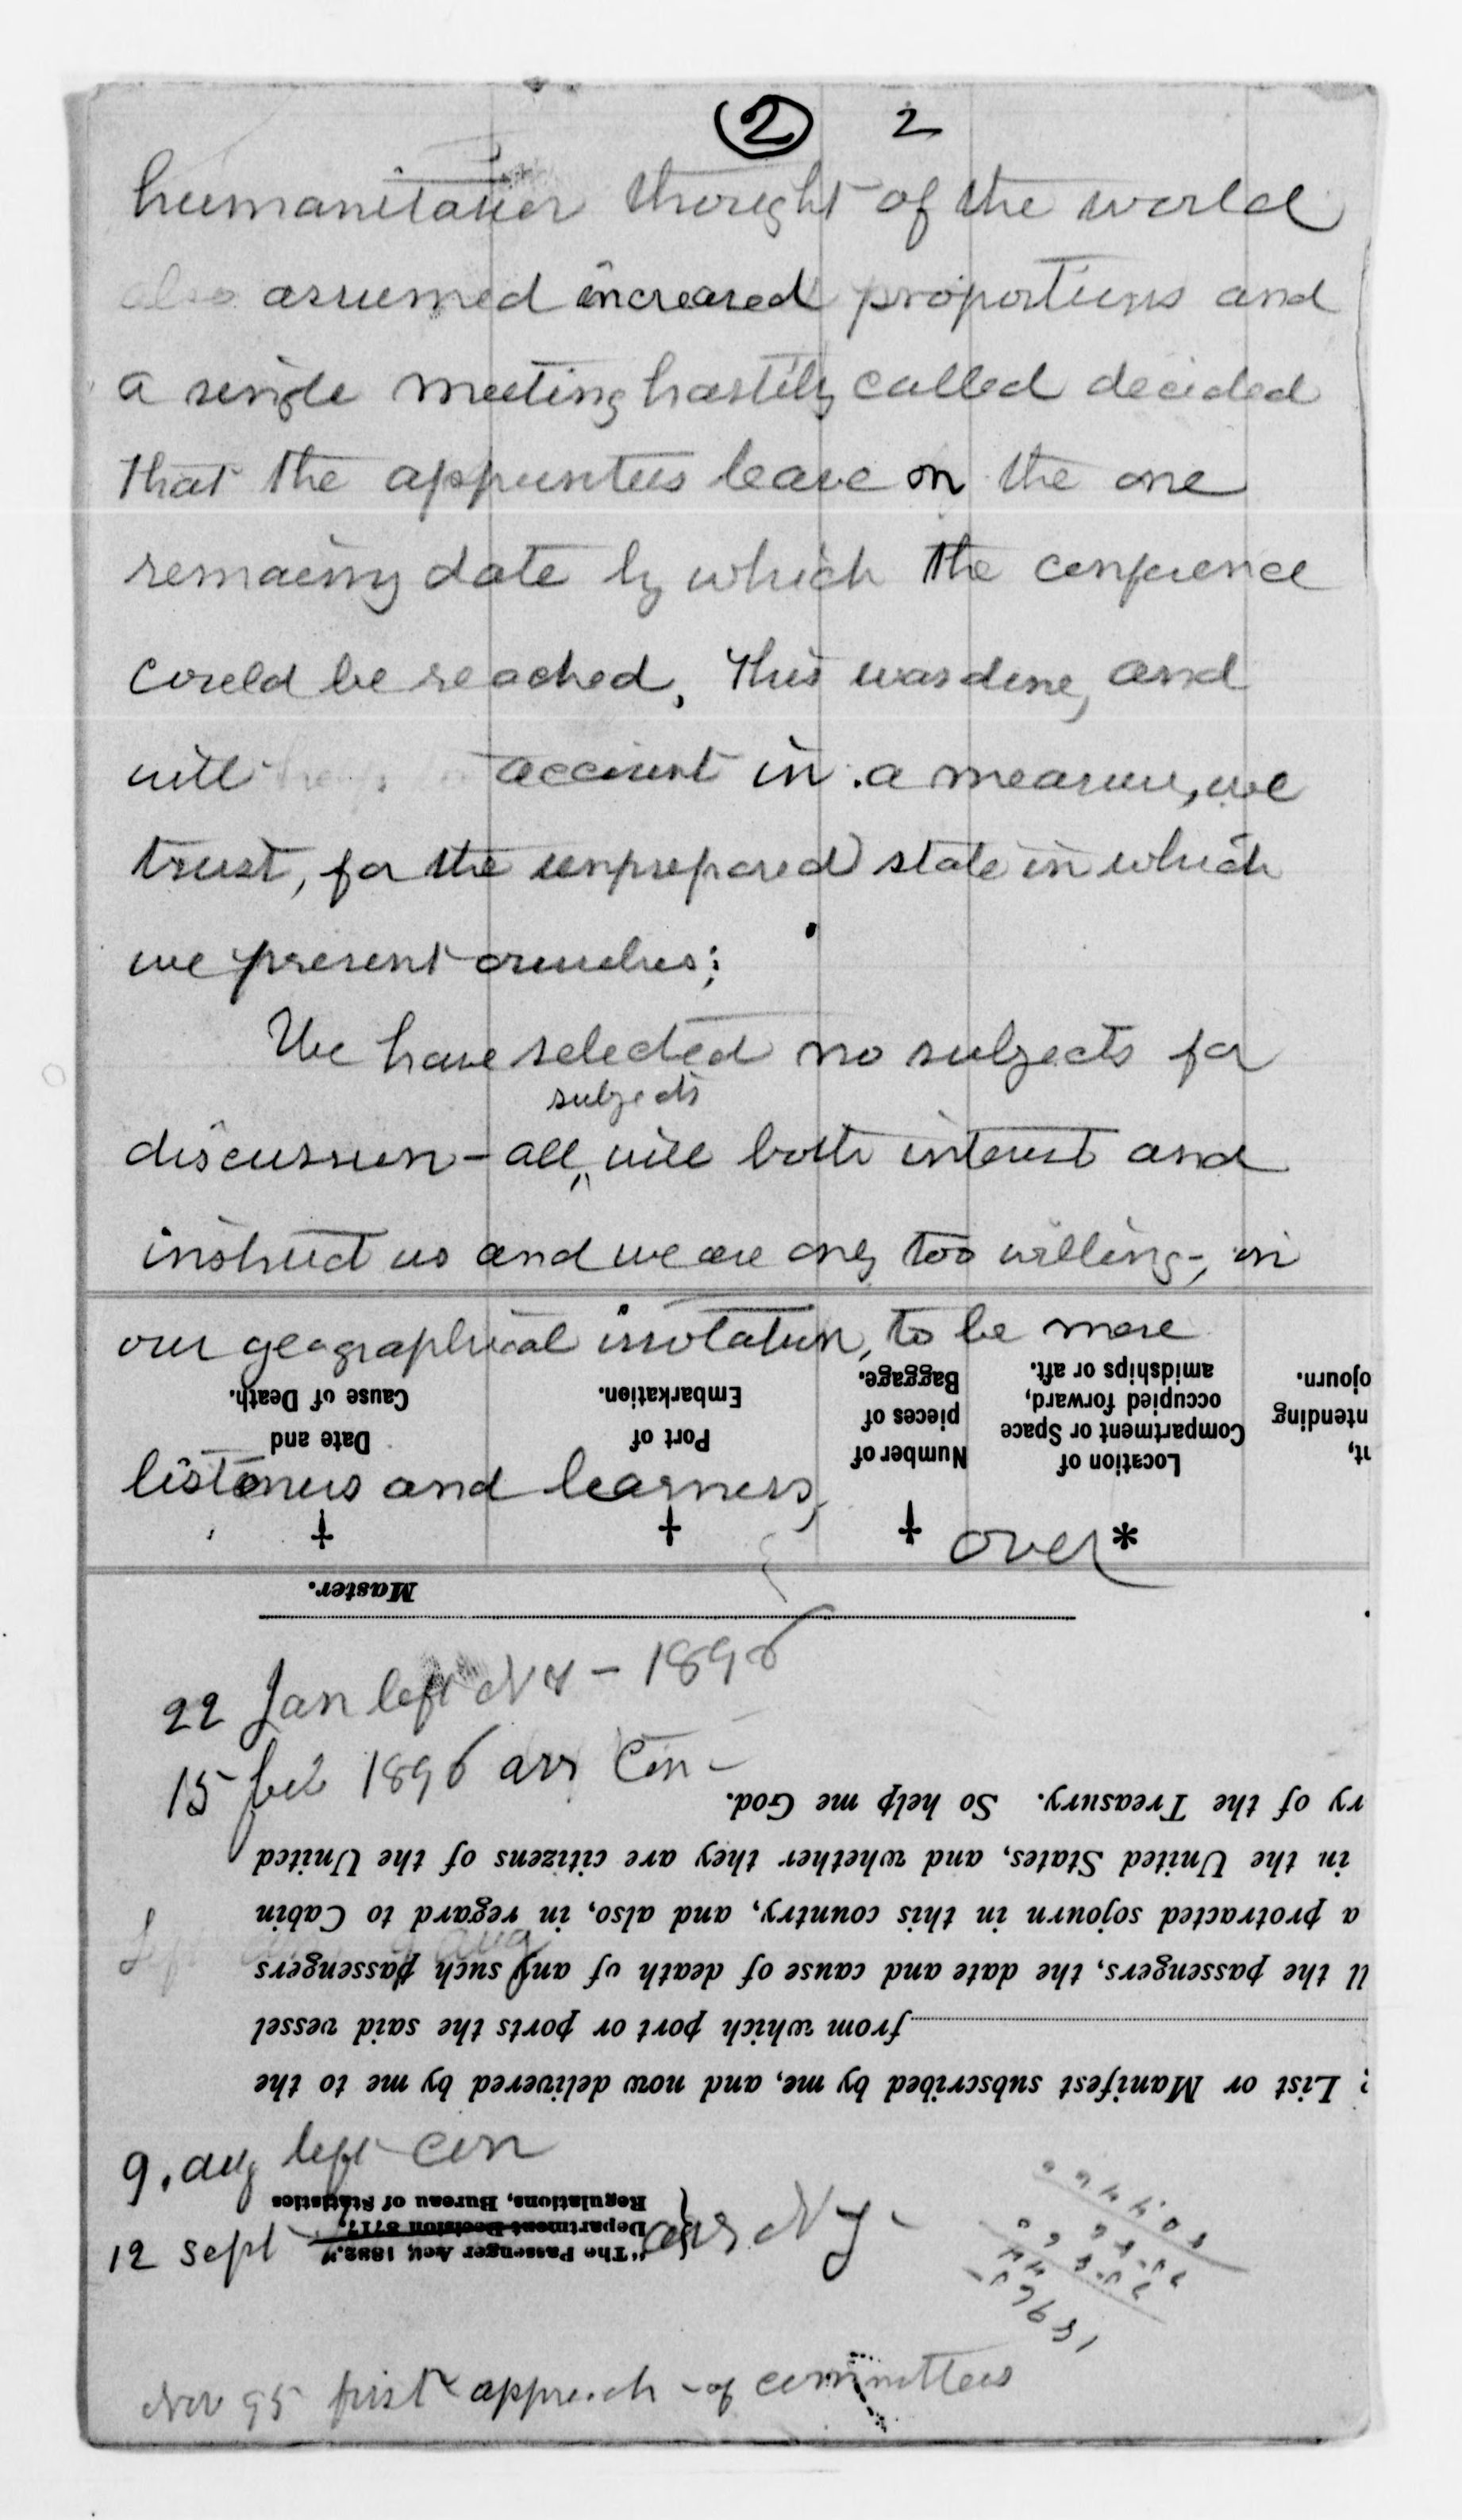 2 2
humanitarian thought of the world
also assumed increased proportions and
a single meeting hastily called decided
that the appointees leave on the one
remaining date by which the conference
could be reached. This was done, and
will account in a measure, we
trust, for the unprepared state in which
we present ourselves;
We have selected no subjects for
subjects
discussion - all will both interest and
instruct us and we are only too willing, in
our geographical isolation, to be more
listeners and learners,
over *
† † †
Date and Cause of Death.
Port of Embarkation.
Number of pieces of Baggage.
Location of Compartment or Space occupied forward, amidships or aft.
nt, ntending ojourn.
Master.
22 Jan left NY - 1896
15 feb 1896 arr Con -
ry of the Treasury. So help me God.
in the United States, and whether they are citizens of the United
a protracted sojourn in this country, and also, in regard to Cabin
ll the passengers, the date and cause of death of any such passengers
from which port or ports the said vessel
: List or Manifest subscribed by me, and now delivered by me to the
9. aug left Con
12 sept arr NY -
"The Passenger Act, 1882."
Department Decision 8717.
Regulations, Bureau of Statistics
Nov 95 first approach - of committees